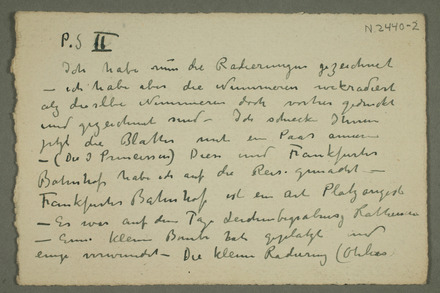 N. 2440-2
P.S II
Ich habe nun die Radierungen gezeichnet
– ich habe aber die Nummeren
als dieselbe Nummeren doch vorher gedruckt
und gezeichnet sind – Ich schicke Ihnen
jetzt die Blätter mit ein Paar andere
– (Die 3 Prinzessen) Diese und Frankfurter
Bahnhof habe ich auf die Reise gemacht –
Frankfurter Bahnhof ist ein art Platzangst
– Es war auf dem Tage Rathenau
– Eine kleine Bombe hat geplatzt und
einige verwundet – Die kleine Radierung